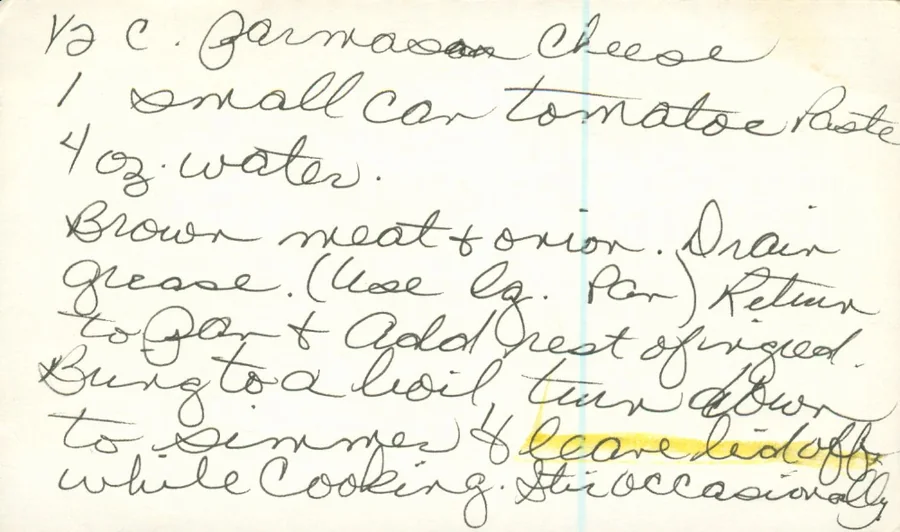 1/2 c. Parmasan Cheese
1 small can tomatoe Paste
4 oz. water.
Brown meat & onion. Drain
grease. (Use lg. Pan) Return
to Pan & Add rest of ingred.
Bring to a boil, turn down
to simmer & leave lid off
while Cooking. Stir occasionally